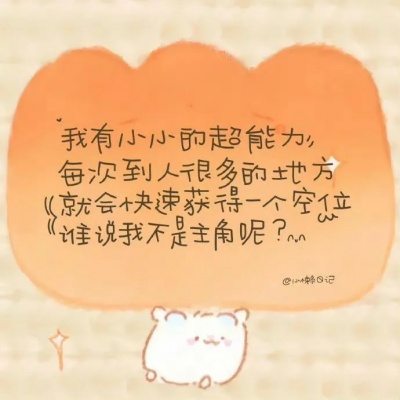 我有小小的超能力
每次到人很多的地方
就会快速获得一个空位
谁说我不是主角呢？